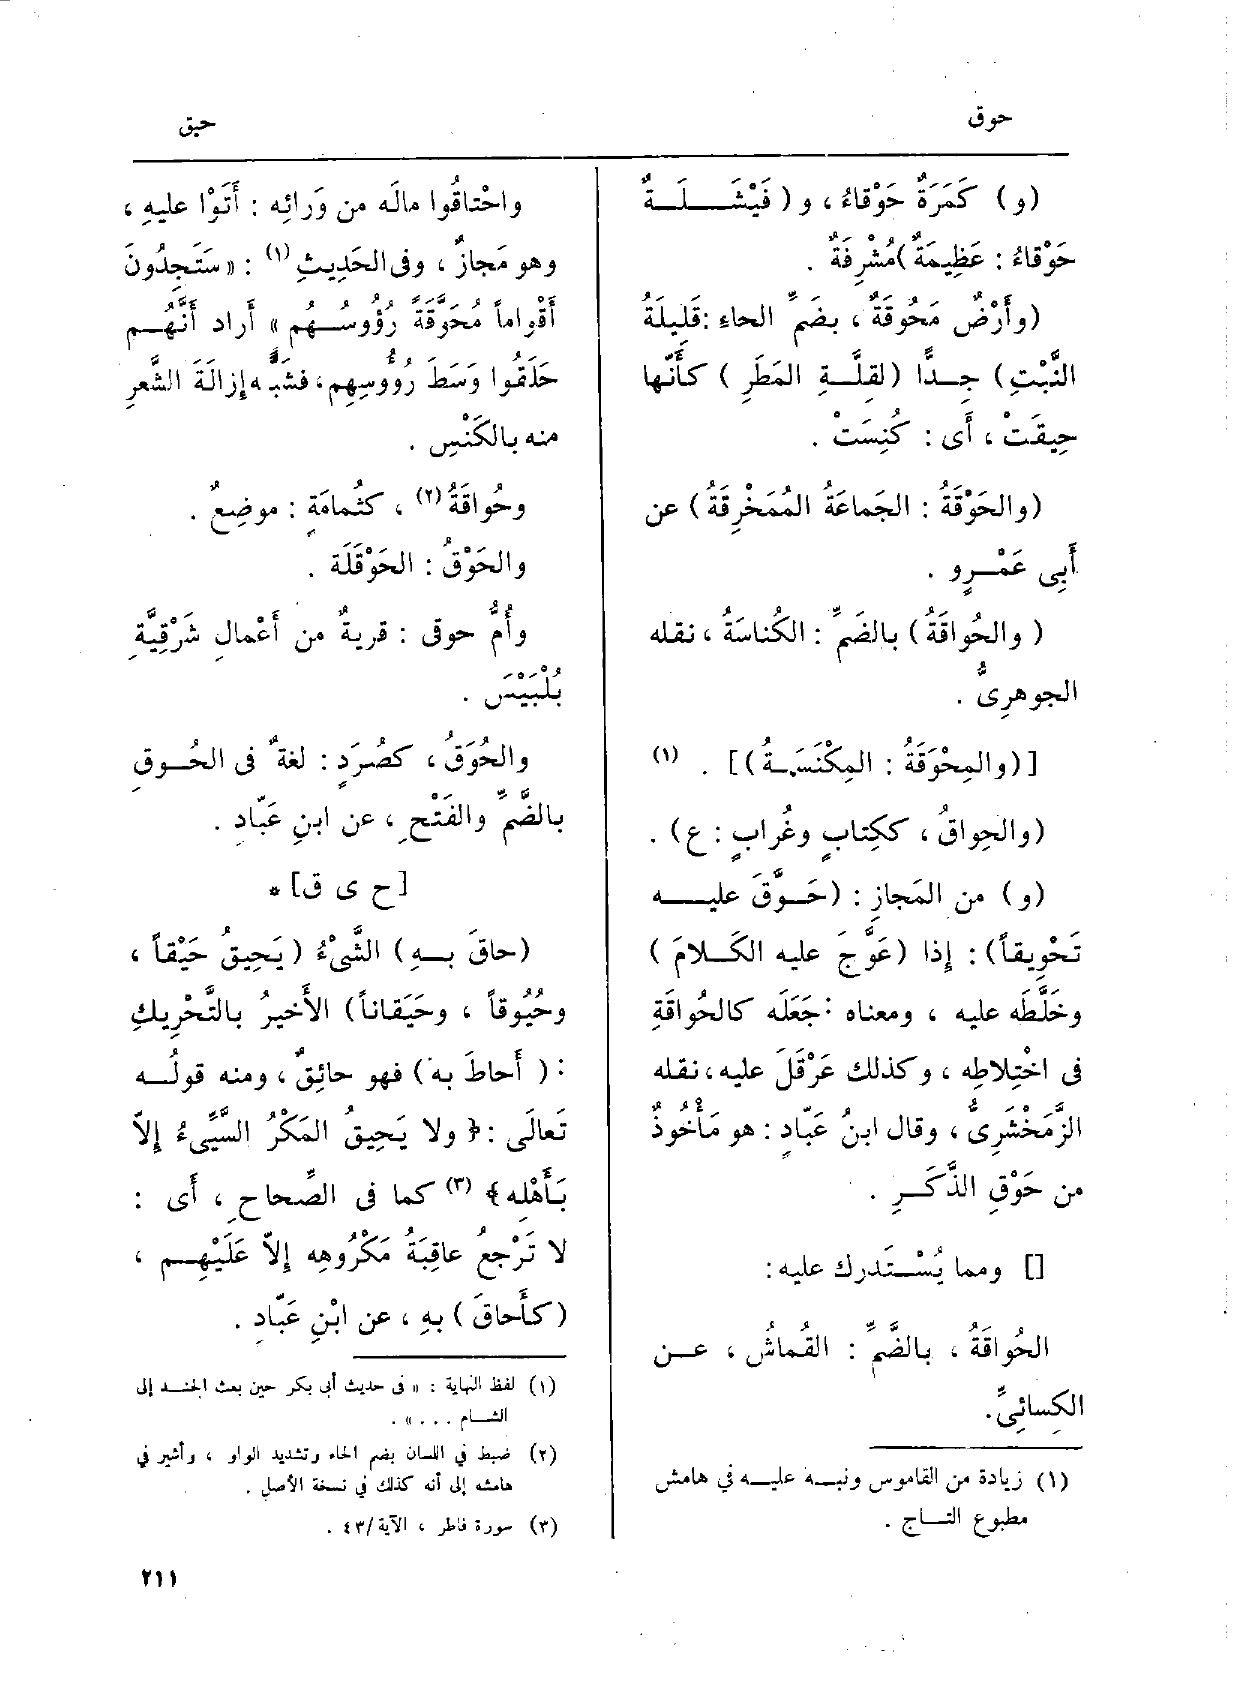 حوق
حيق
(و) كَمَرَةٌ حَوْقاءُ ، و (فَيْشَلَةٌ
حَوْقاءُ : عَظِيمَةٌ) مُشْرِفَةٌ .
(وأَرْضٌ مَحُوقَةٌ ، بضَمِّ الحاءِ : قَلِيلَةُ
النَّبْتِ) جِدًّا (لقِلَّةِ المَطَرِ ) كأَنَّها
حِيقَتْ ، أَى : كُنِسَتْ .
(والحَوْقَةُ : الجَماعَةُ المُمَخْرِقَةُ) عن
أَبِى عَمْرٍو .
( والحُواقَةُ) بالضَمِّ : الكُناسَةُ ، نقله
الجوهرِىُّ .
[(والمِحْوَقَةُ : المِكْنَسَةُ)] . (١)
(والحِواقُ ، ككِتابٍ وغُرابٍ : ع) .
(و) من المَجازِ : (حَوَّقَ عليه
تَحْوِيقاً) : إذا (عَوَّجَ عليه الكَلامَ )
وخَلَّطَه عليه ، ومعناه : جَعَلَه كالحُواقَةِ
فى اخْتِلاطِه ، وكذلك عَرْقَلَ عليه ، نقله
الزَّمَخْشَرِىُّ ، وقال ابنُ عَبّادٍ : هو مَأْخُوذٌ
من حَوْقِ الذَّكَرِ .
[] ومما يُسْتَدرك عليه :
الحُواقَةُ ، بالضَّمِّ : القُماشُ ، عن
الكِسائِىِّ .
(١) زيادة من القاموس ونبه عليه في هامش
مطبوع التاج .
واحْتاقُوا مالَه من وَرائِه : أَتَوْا عليهِ ،
وهو مَجازٌ ، وفى الحَدِيثِ (١) : « سَتَجِدُونَ
أَقْواماً مُحَوَّقَةً رُؤُوسُهُم » أراد أَنَّهُم
حَلَقُوا وَسَطَ رُؤُوسِهِم ، فشَبَّه إزالَةَ الشَّعرِ
منه بالكَنْسِ .
وحُواقَةُ (٢) ، كثُمامَةٍ : موضِعٌ .
والحَوْقُ : الحَوْقَلَة .
وأُمُّ حوقى : قريةٌ من أَعْمالِ شَرْقِيَّةِ
بُلْبَيْسَ .
والحُوَقُ ، كصُرَدٍ : لغةٌ فى الحُوقِ
بالضَّمِّ والفَتْحِ ، عن ابنِ عَبّادٍ .
[ح ى ق] *
(حاقَ بهِ) الشَّىْءُ (يَحِيقُ حَيْقاً ،
وحُيُوقاً ، وحَيَقاناً) الأَخيرُ بالتَّحْرِيكِ
: ( أَحاطَ به) فهو حائِقٌ ، ومنه قولُه
تَعالَى : ﴿ ولا يَحِيقُ المَكْرُ السَّيِّىءُ إلاّ
بأَهْلِه ﴾ (٣) كما فى الصِّحاحِ ، أَى :
لا تَرْجعُ عاقِبَةُ مَكْرُوهِه إلاّ عَلَيْهِم ،
(كأَحاقَ ) بهِ ، عن ابْنِ عَبّادٍ .
(١) لفظ النهاية : « فى حديث أبى بكر حين بعث الجند إلى
الشام . . . » .
(٢) ضبط في اللسان بضم الحاء وتشديد الواو ، وأشير في
هامشه إلى أنه كذلك في نسخة الأصل .
(٣) سورة فاطر ، الآية/٤٣ .
٢١١